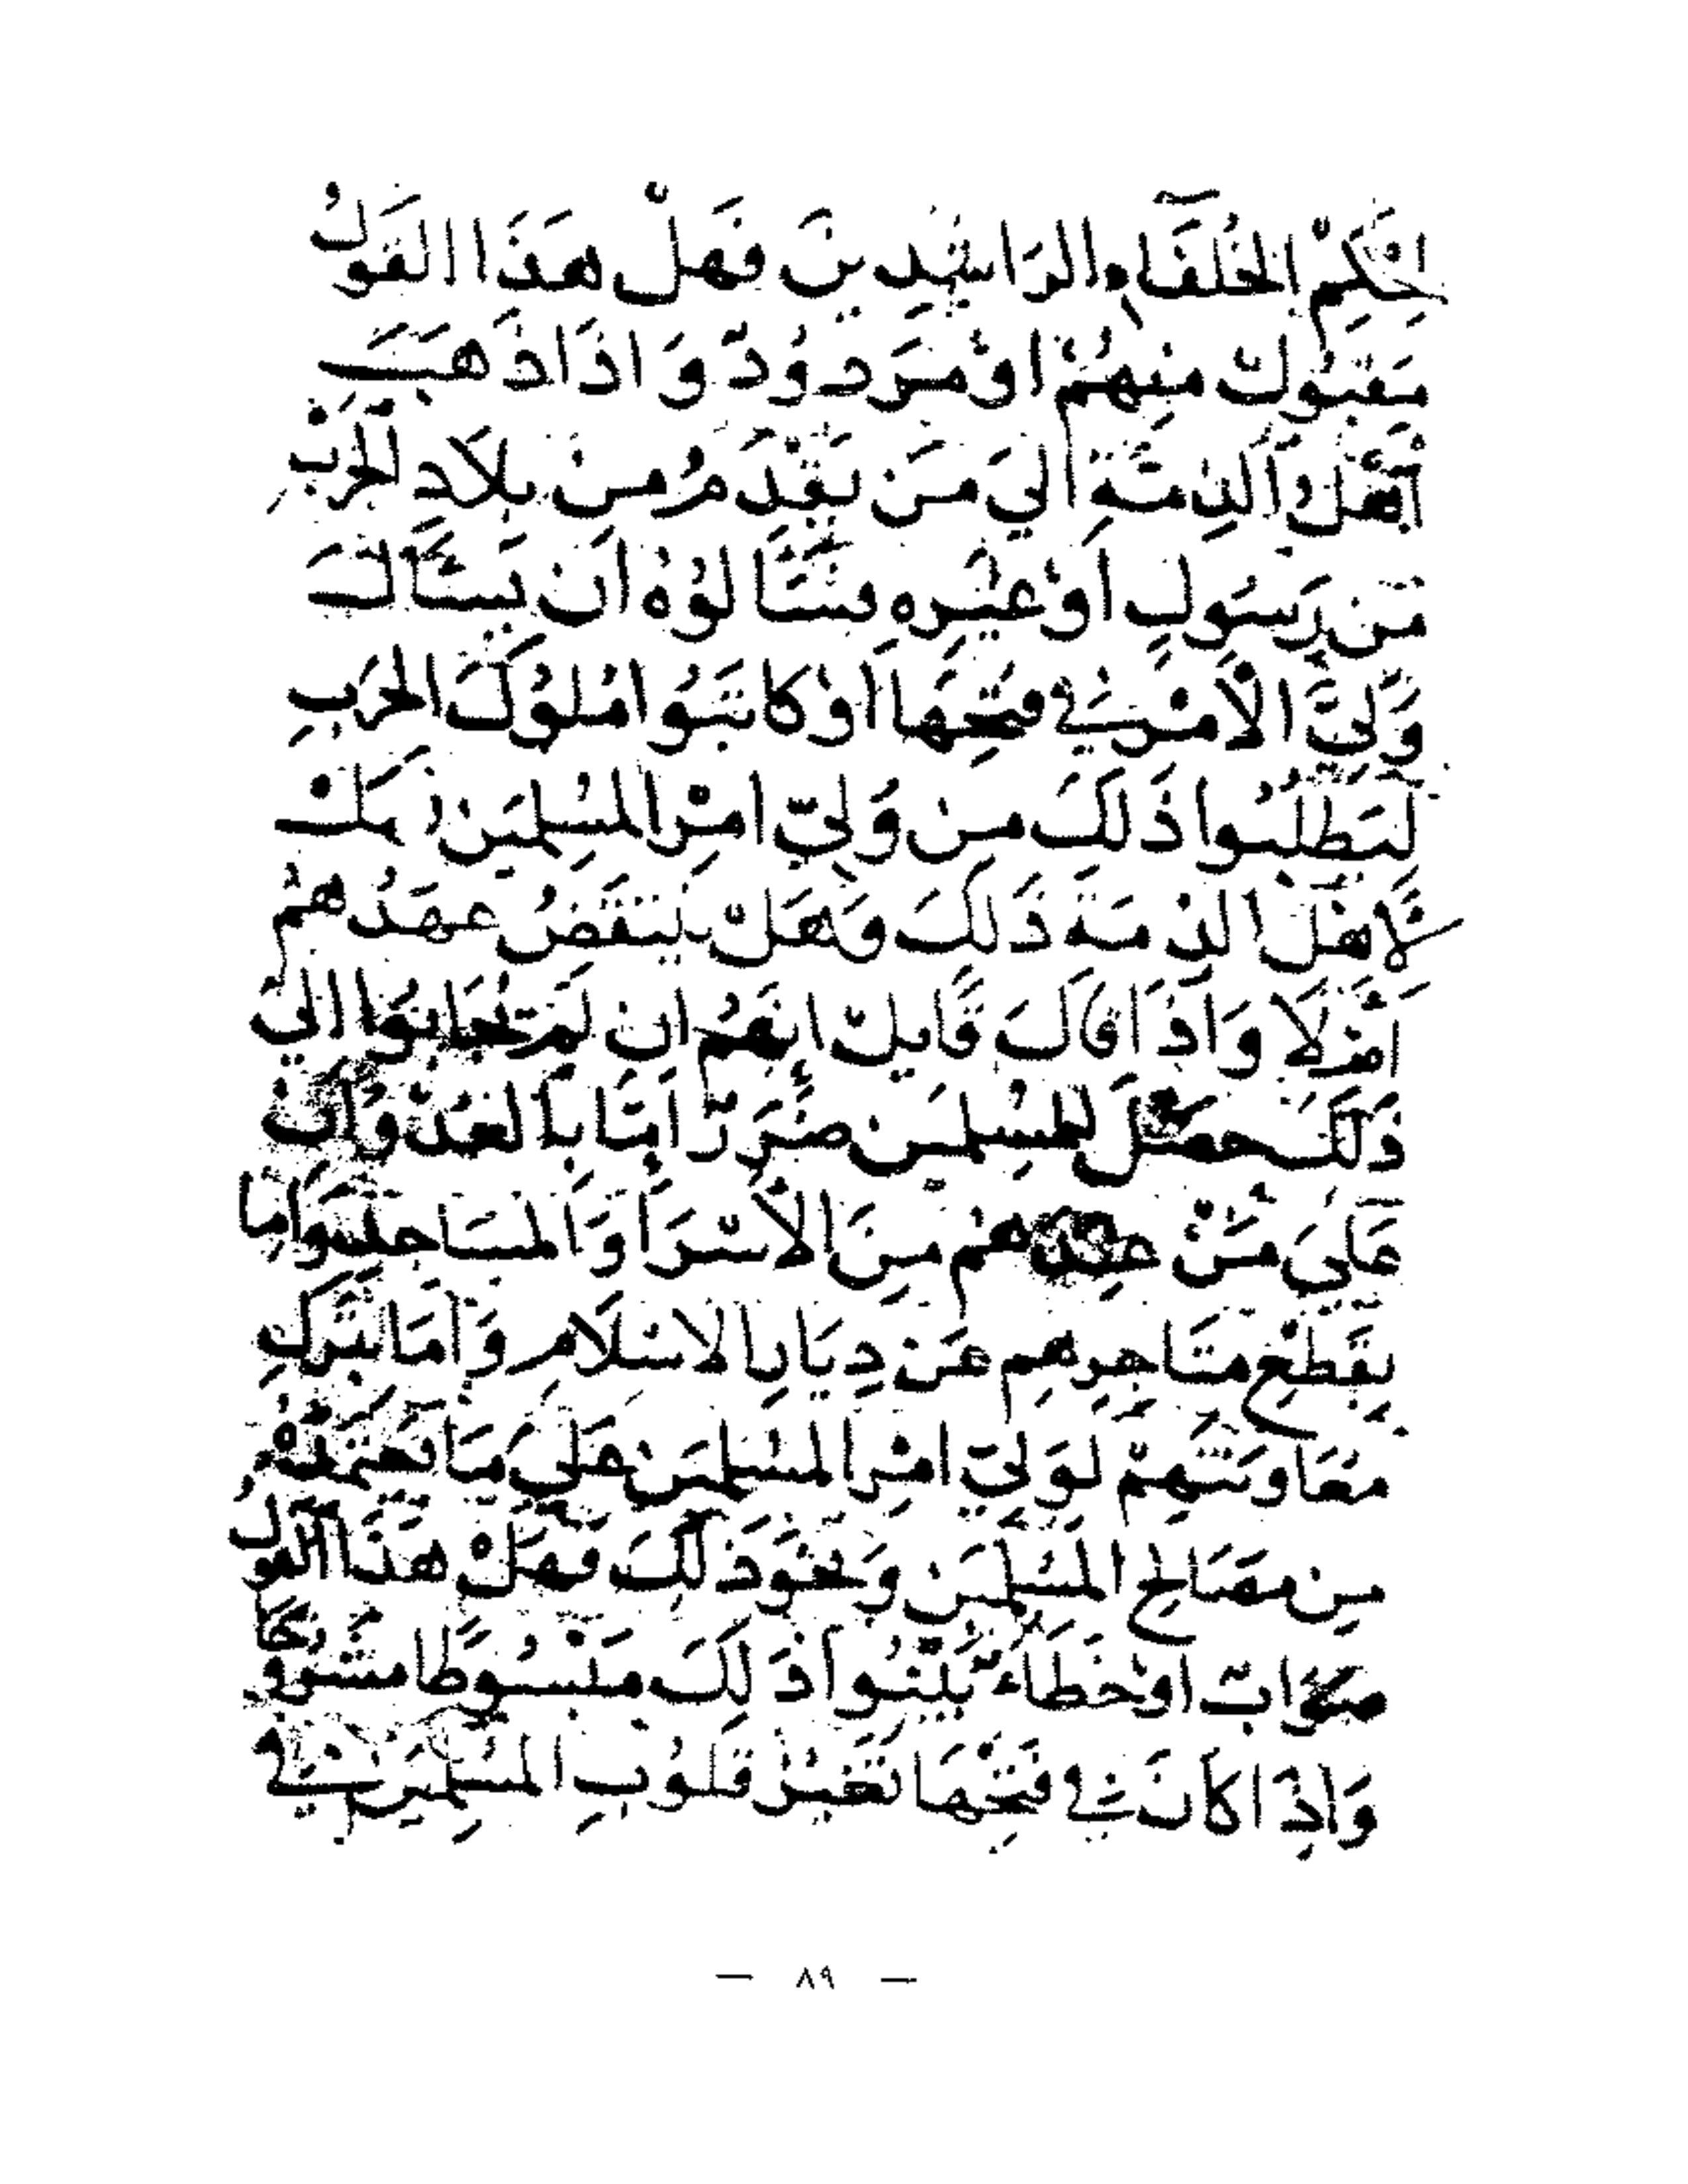 حُكْمِ الخُلَفَآءِ الرَاشِدِينَ فَهَلْ هَذَا القَوْلُ
مَقبُولٌ مِنهُمْ اوْ مَرَدُودٌ وَاذَا ذَهَبَ
أهْلُ الذِمَّةِ اليَ مَن يَقْدَمُ مِن بِلَادِ الحَرْبِ
مَن رَسُولٍ اَوْ غيْرِهِ فسَّالوُهُ اَن يَسَّالَ
وَليَّ الْأمْرِ في فتحِهَا اَوْ كاتَبُوا مُلُوكَ الحَرَبِ
لَيَطْلبُوا ذَلكَ مِن وَليّ امْرِ المُسْلِمَين
لِأهْلِ الذِمَةِ ذَلكَ وَهَلْ يَنتقَضُ عهَدُهمُ
اَمْ لَا وَاذَا قالَ قَايلٌ انهَمُ ان لَمْ يُجَابوُا الىَ
ذَلكَ حصَلَ للمُسِلمَين ضَرَرٌ اَمّا بِالعُدْوَانِ
عَليَ مَنْ عِندَهمُ مِنَ الأسْرَا وَالمَسَاجِدِ وَامِا
بِقَطْعِ مَتَاجِرِهِم عَن دِيَارِ الاسْلَامِ وَامَا بتَركِ
مُعَاوَنَتهِمْ لوَليّ امْرِ المسُلمَين عَليَ مَا يَعْتَمِدُهُ
مِن مَصَالحِ المُسْلِمَين وَنحْوَ ذَلِكَ فهَلْ هَذَا القَوْلُ
صَوَابٌ اوْ خَطَاءٌ بَيّنُوا ذَلِكَ مَبْسُوطًا مشْرُوحًا
وَاذِا كاَنَ في فَتْحِهَا تَغَيُّرُ قلوُبِ المُسْلِمَين في
— ٨٩ —